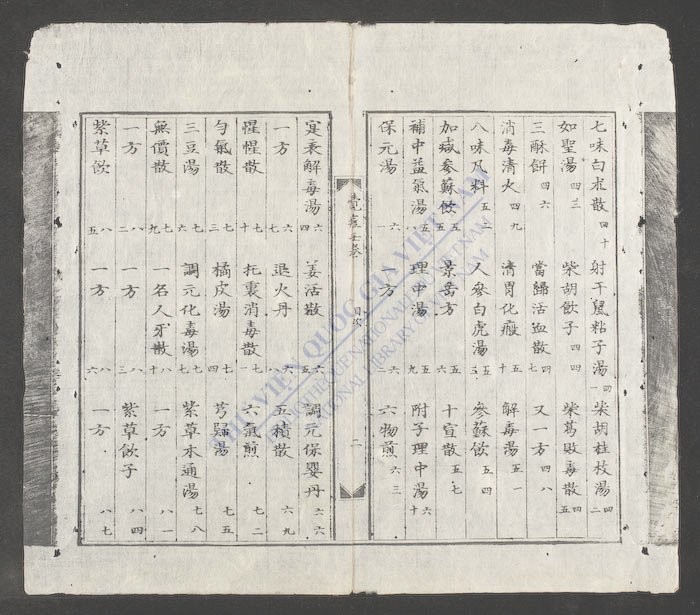 七味白朮散四十 射干鼠粘子湯四一 柴胡桂枝湯四二
如聖湯四三 柴胡飲子四四 柴葛敗毒散四五
三酥餅四六 當歸活血散四七 又一方四八
消毒清火四九 清胃化癍五十 解毒湯五一
八味凡料五二 人參白虎湯五三 參蘇飲五四
加減參蘇飲五五 景岳方五六 十宣散五七
補中益氣湯五八 理中湯五九 附子理中湯六十
保元湯六一 一方六二 六物煎六三
目次
二
定表解毒湯六四 羌活散六五 調元保嬰丹六六
一方六七 退火丹六八 五積散六九
惺惺散七十 托裏消毒散七一 六氣煎七二
勻氣散七三 橘皮湯七四 芎歸湯七五
三豆湯七六 調元化毒湯七七 紫草木通湯七八
無價散七九 一名人牙散八十 一方八一
一方八二 一方八三 紫草飲子八四
紫草飲八五 一方八六 一方八七
THƯ VIỆN QUỐC GIA VIỆT NAM
BIBLIOTHÈQUE NATIONALE DU VIETNAM
NATIONAL LIBRARY OF VIETNAM